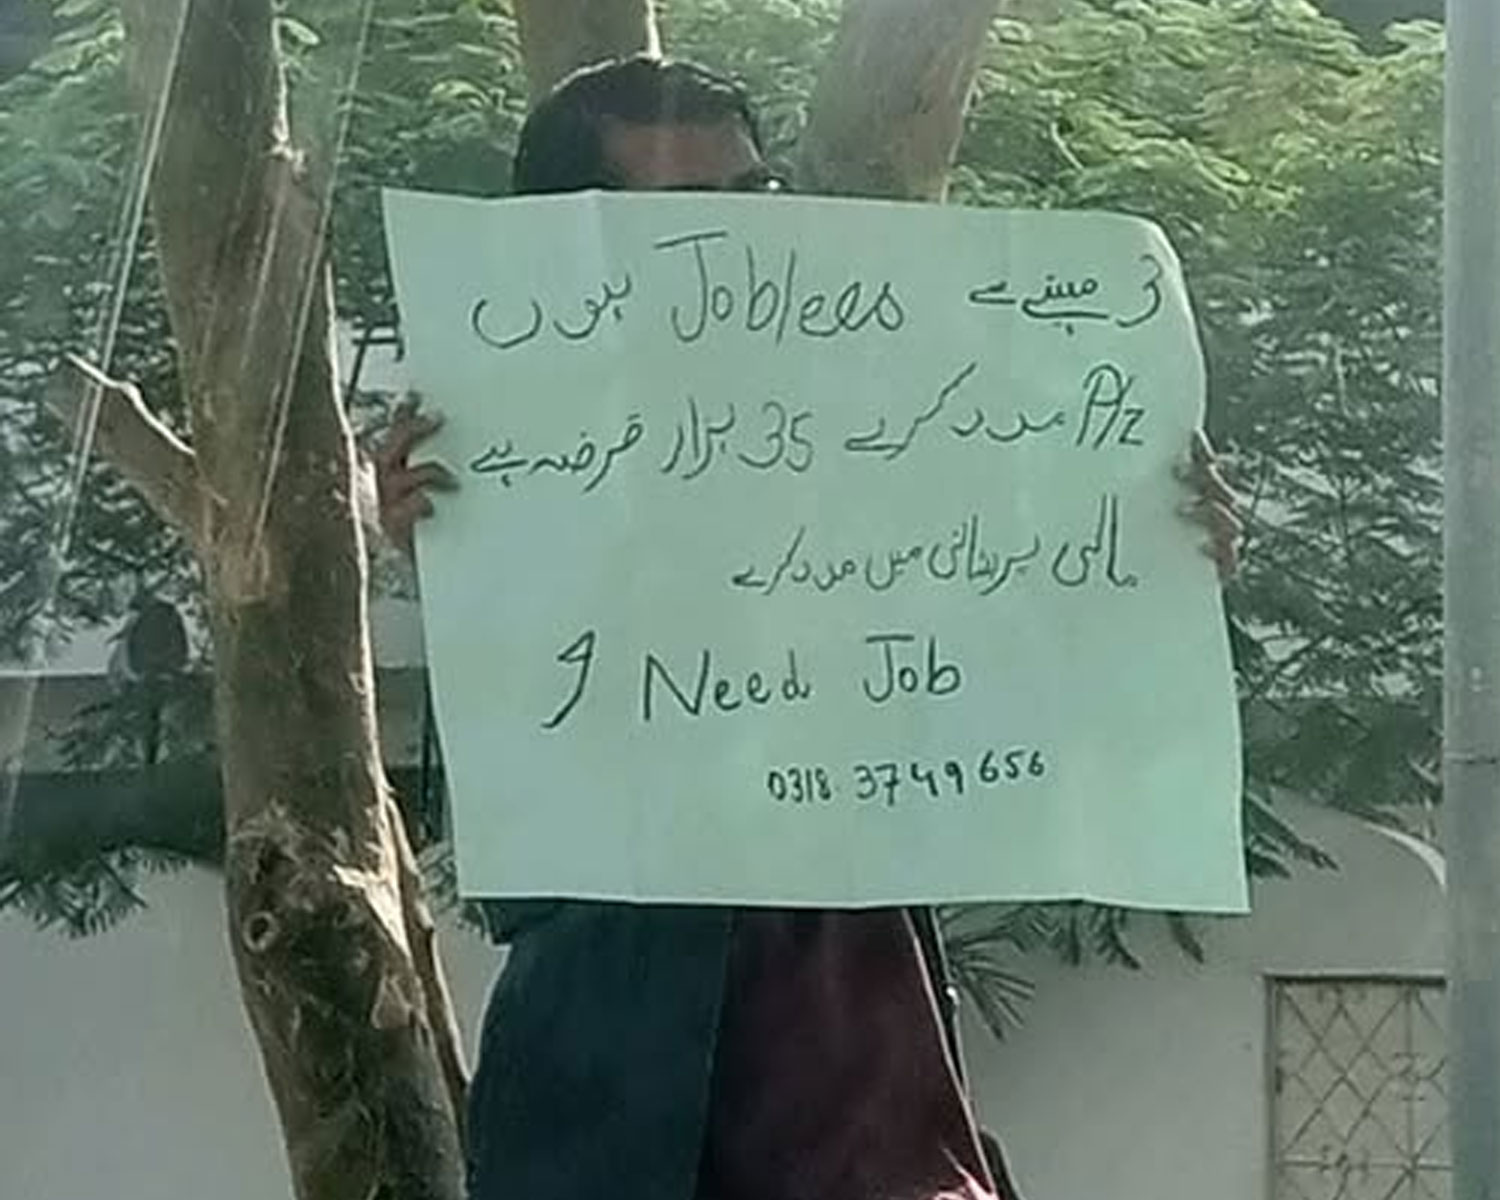 3 مہینے سے Jobless ہوں
Plz مدد کرے 35 ہزار قرضہ ہے
مالی پریشانی میں مدد کرے
I Need Job
0318 3749656